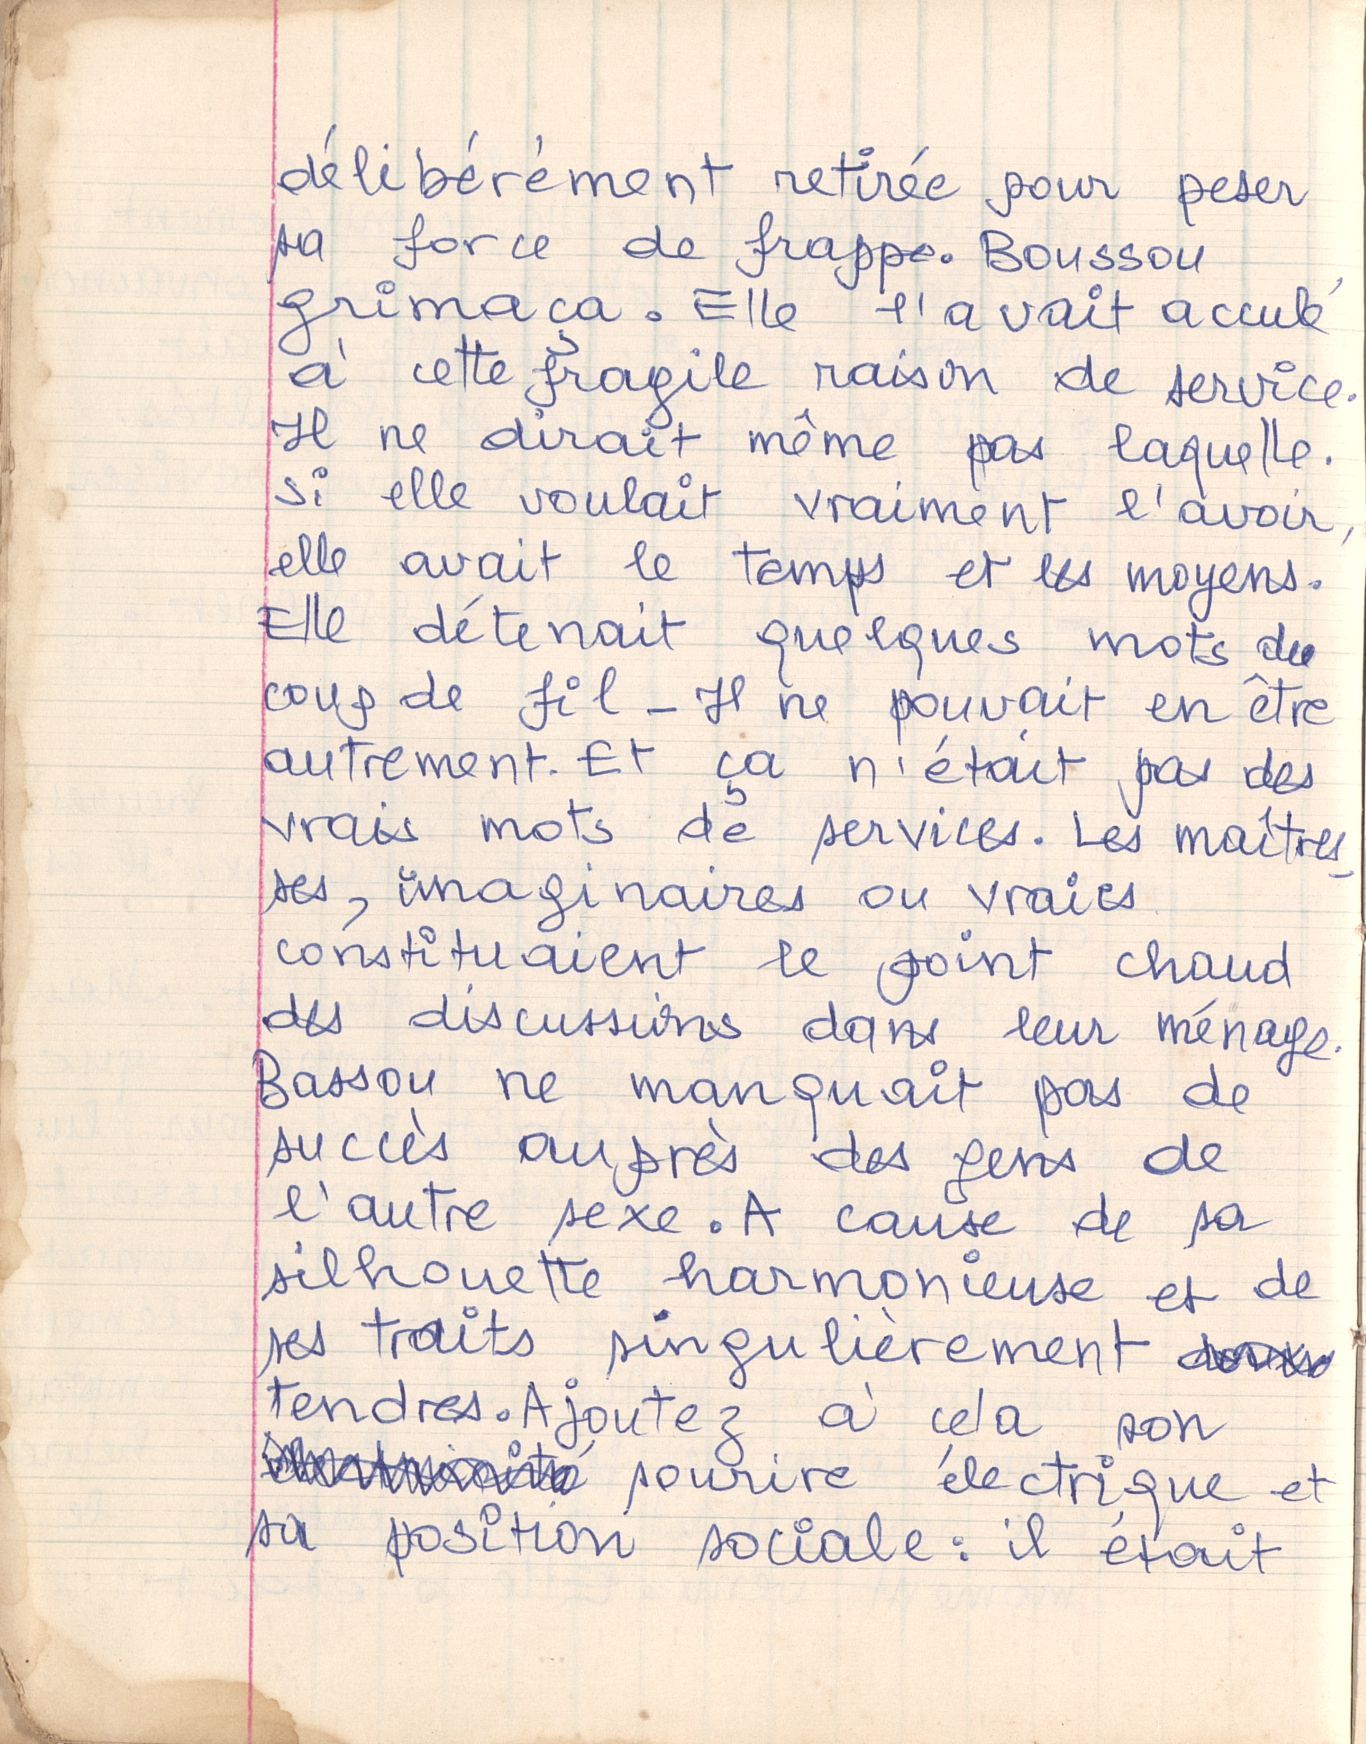 délibérément retirée pour peser
sa force de frappe. Boussou
grimaça. Elle l'avait acculé
à cette fragile raison de service.
Il ne dirait même pas laquelle.
Si elle voulait vraiment l'avoir,
elle avait le temps et les moyens.
Elle détenait quelques mots du
coup de fil - Il ne pouvait en être
autrement. Et ça n'était pas des
vrais mots de services. Les maîtres-
ses, imaginaires ou vraies
constituaient le point chaud
des discussions dans leur ménage.
Bassou ne manquait pas de
succès auprès des gens de
l'autre sexe. A cause de sa
silhouette harmonieuse et de
ses traits singulièrement
tendres. Ajoutez à cela son
sourire électrique et
sa position sociale : il était